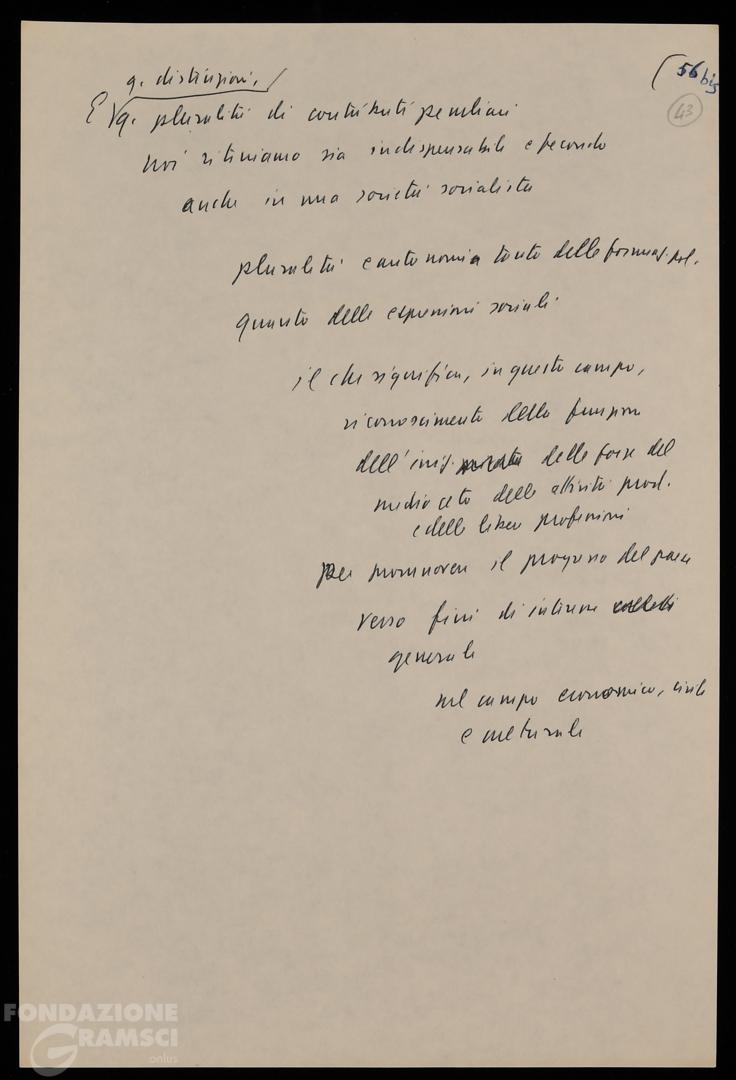 q. distinzioni,
(56 bis
43
E q. pluralità di contributi peculiari
noi riteniamo sia indispensabile e feconda
anche in una società socialista
pluralità e autonomia tanto delle formaz. pol.
quanto delle espressioni sociali
il che significa, in questo campo,
riconoscimento della funzione
dell'iniz. privata delle forze del
medio ceto delle attività prod.
e delle libere professioni
per promuovere il progresso del paese
verso fini di interesse collett
generale
nel campo economico, civile
e culturale
FONDAZIONE
GRAMSCI
onlus